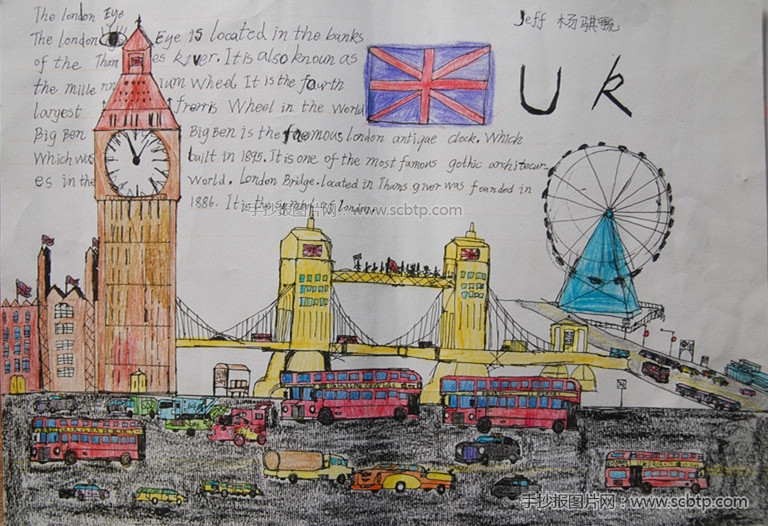 The london Eye
Jeff 杨骐甄
The london Eye is located in the banks
of the Tham es River. It is also knoun as
the mille nn ium Wheel. It is the fourth
UK
largest ferris Wheel in the World
Big Ben Big Ben is the famous london antique clock. Which
Which was built in 1895. It is one of the most famous gothic architecur
es in the World. London Bridge. located in Thams giver was founded in
1886. It is the symbol of london.
手抄报图片网:www.scbtp.com
手抄报图片网:www.scbtp.com